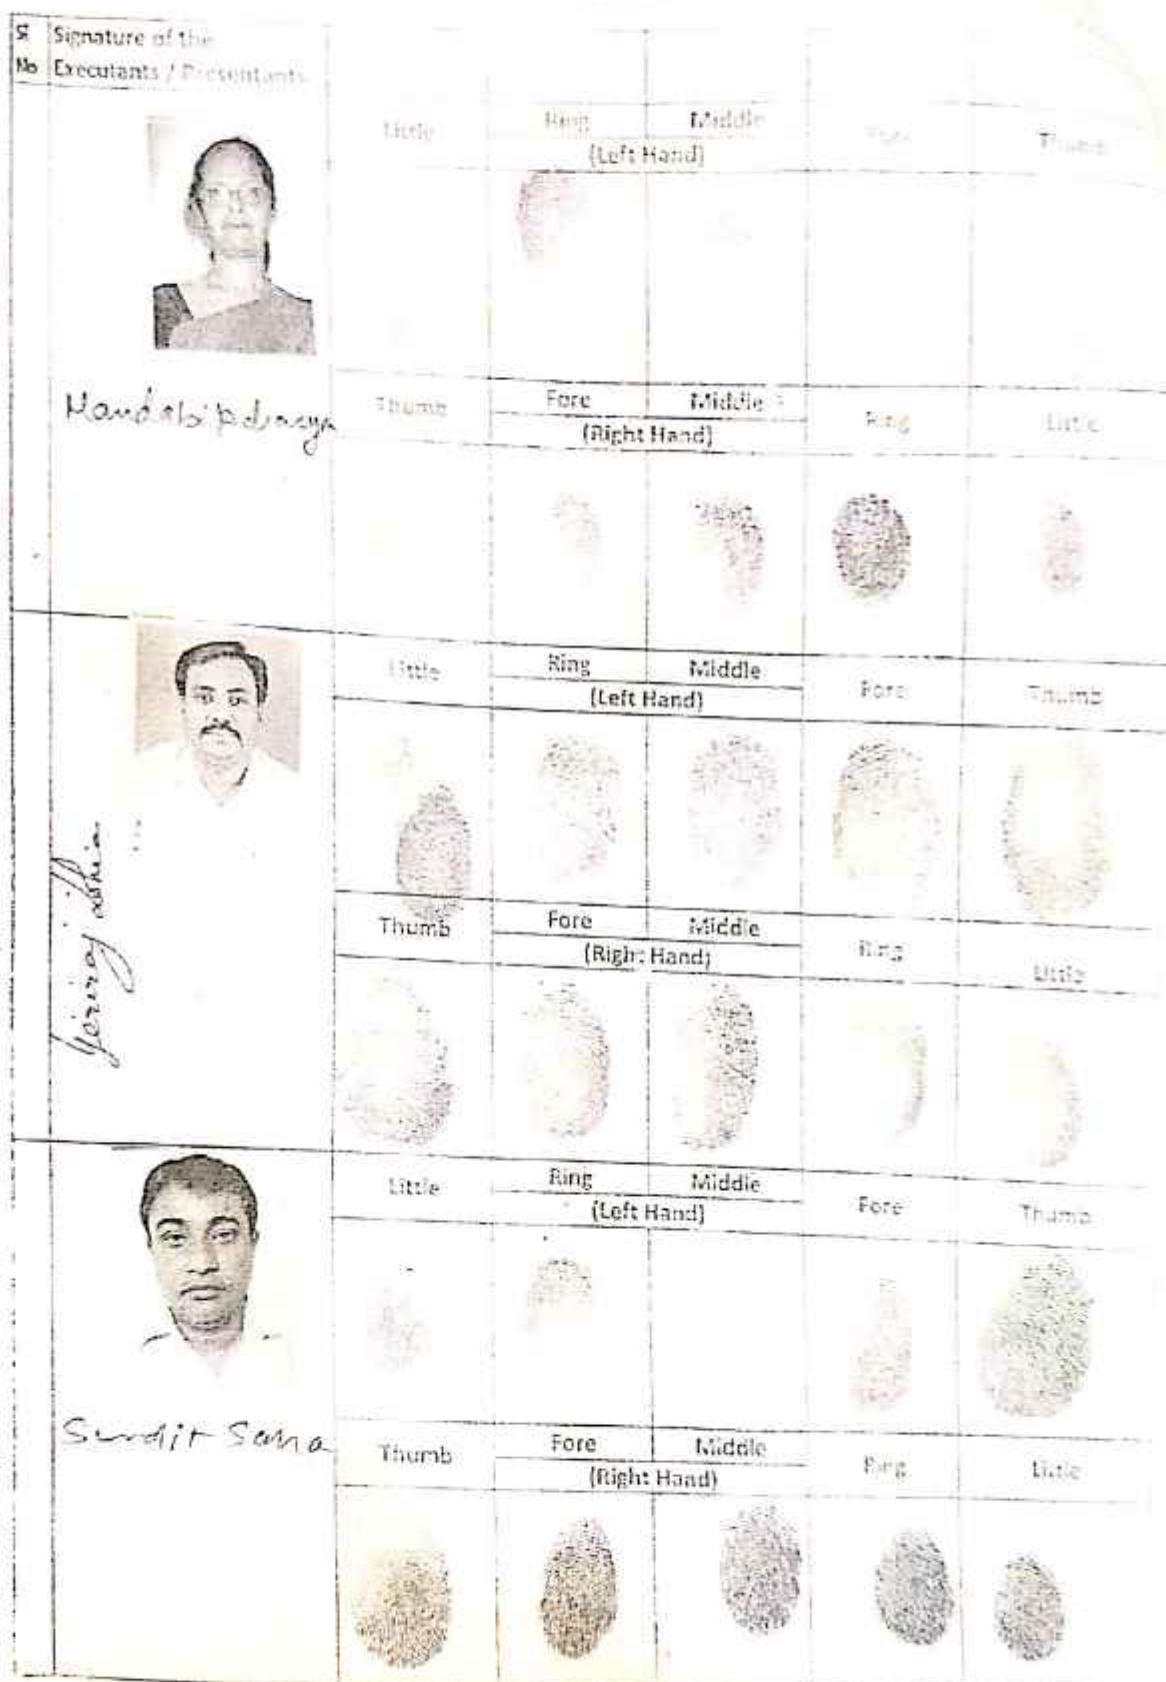 Sl Signature of the
No Executants / Presentants
Little Ring Middle Fore Thumb
(Left Hand)
Thumb Fore Middle Ring Little
(Right Hand)
Little Ring Middle Fore Thumb
(Left Hand)
Thumb Fore Middle Ring Little
(Right Hand)
Little Ring Middle Fore Thumb
(Left Hand)
Saha
Thumb Fore Middle Ring Little
(Right Hand)